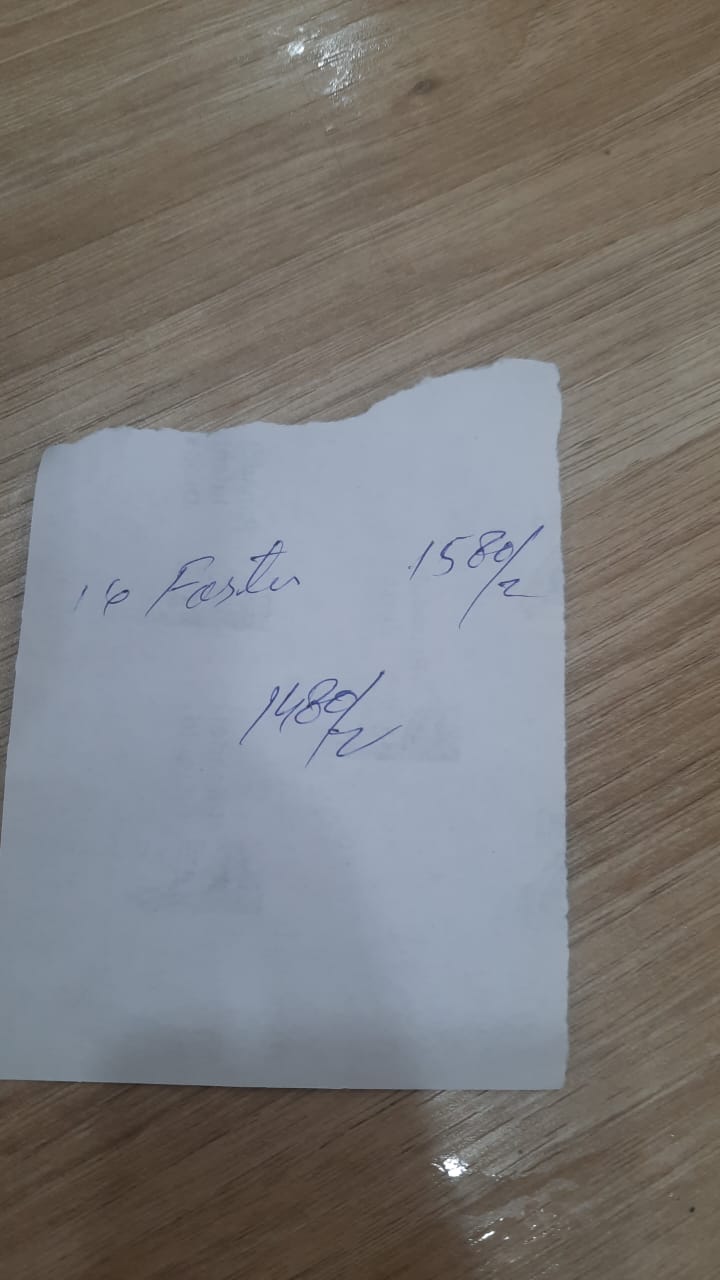 16 Foster 1580/2
1480/2